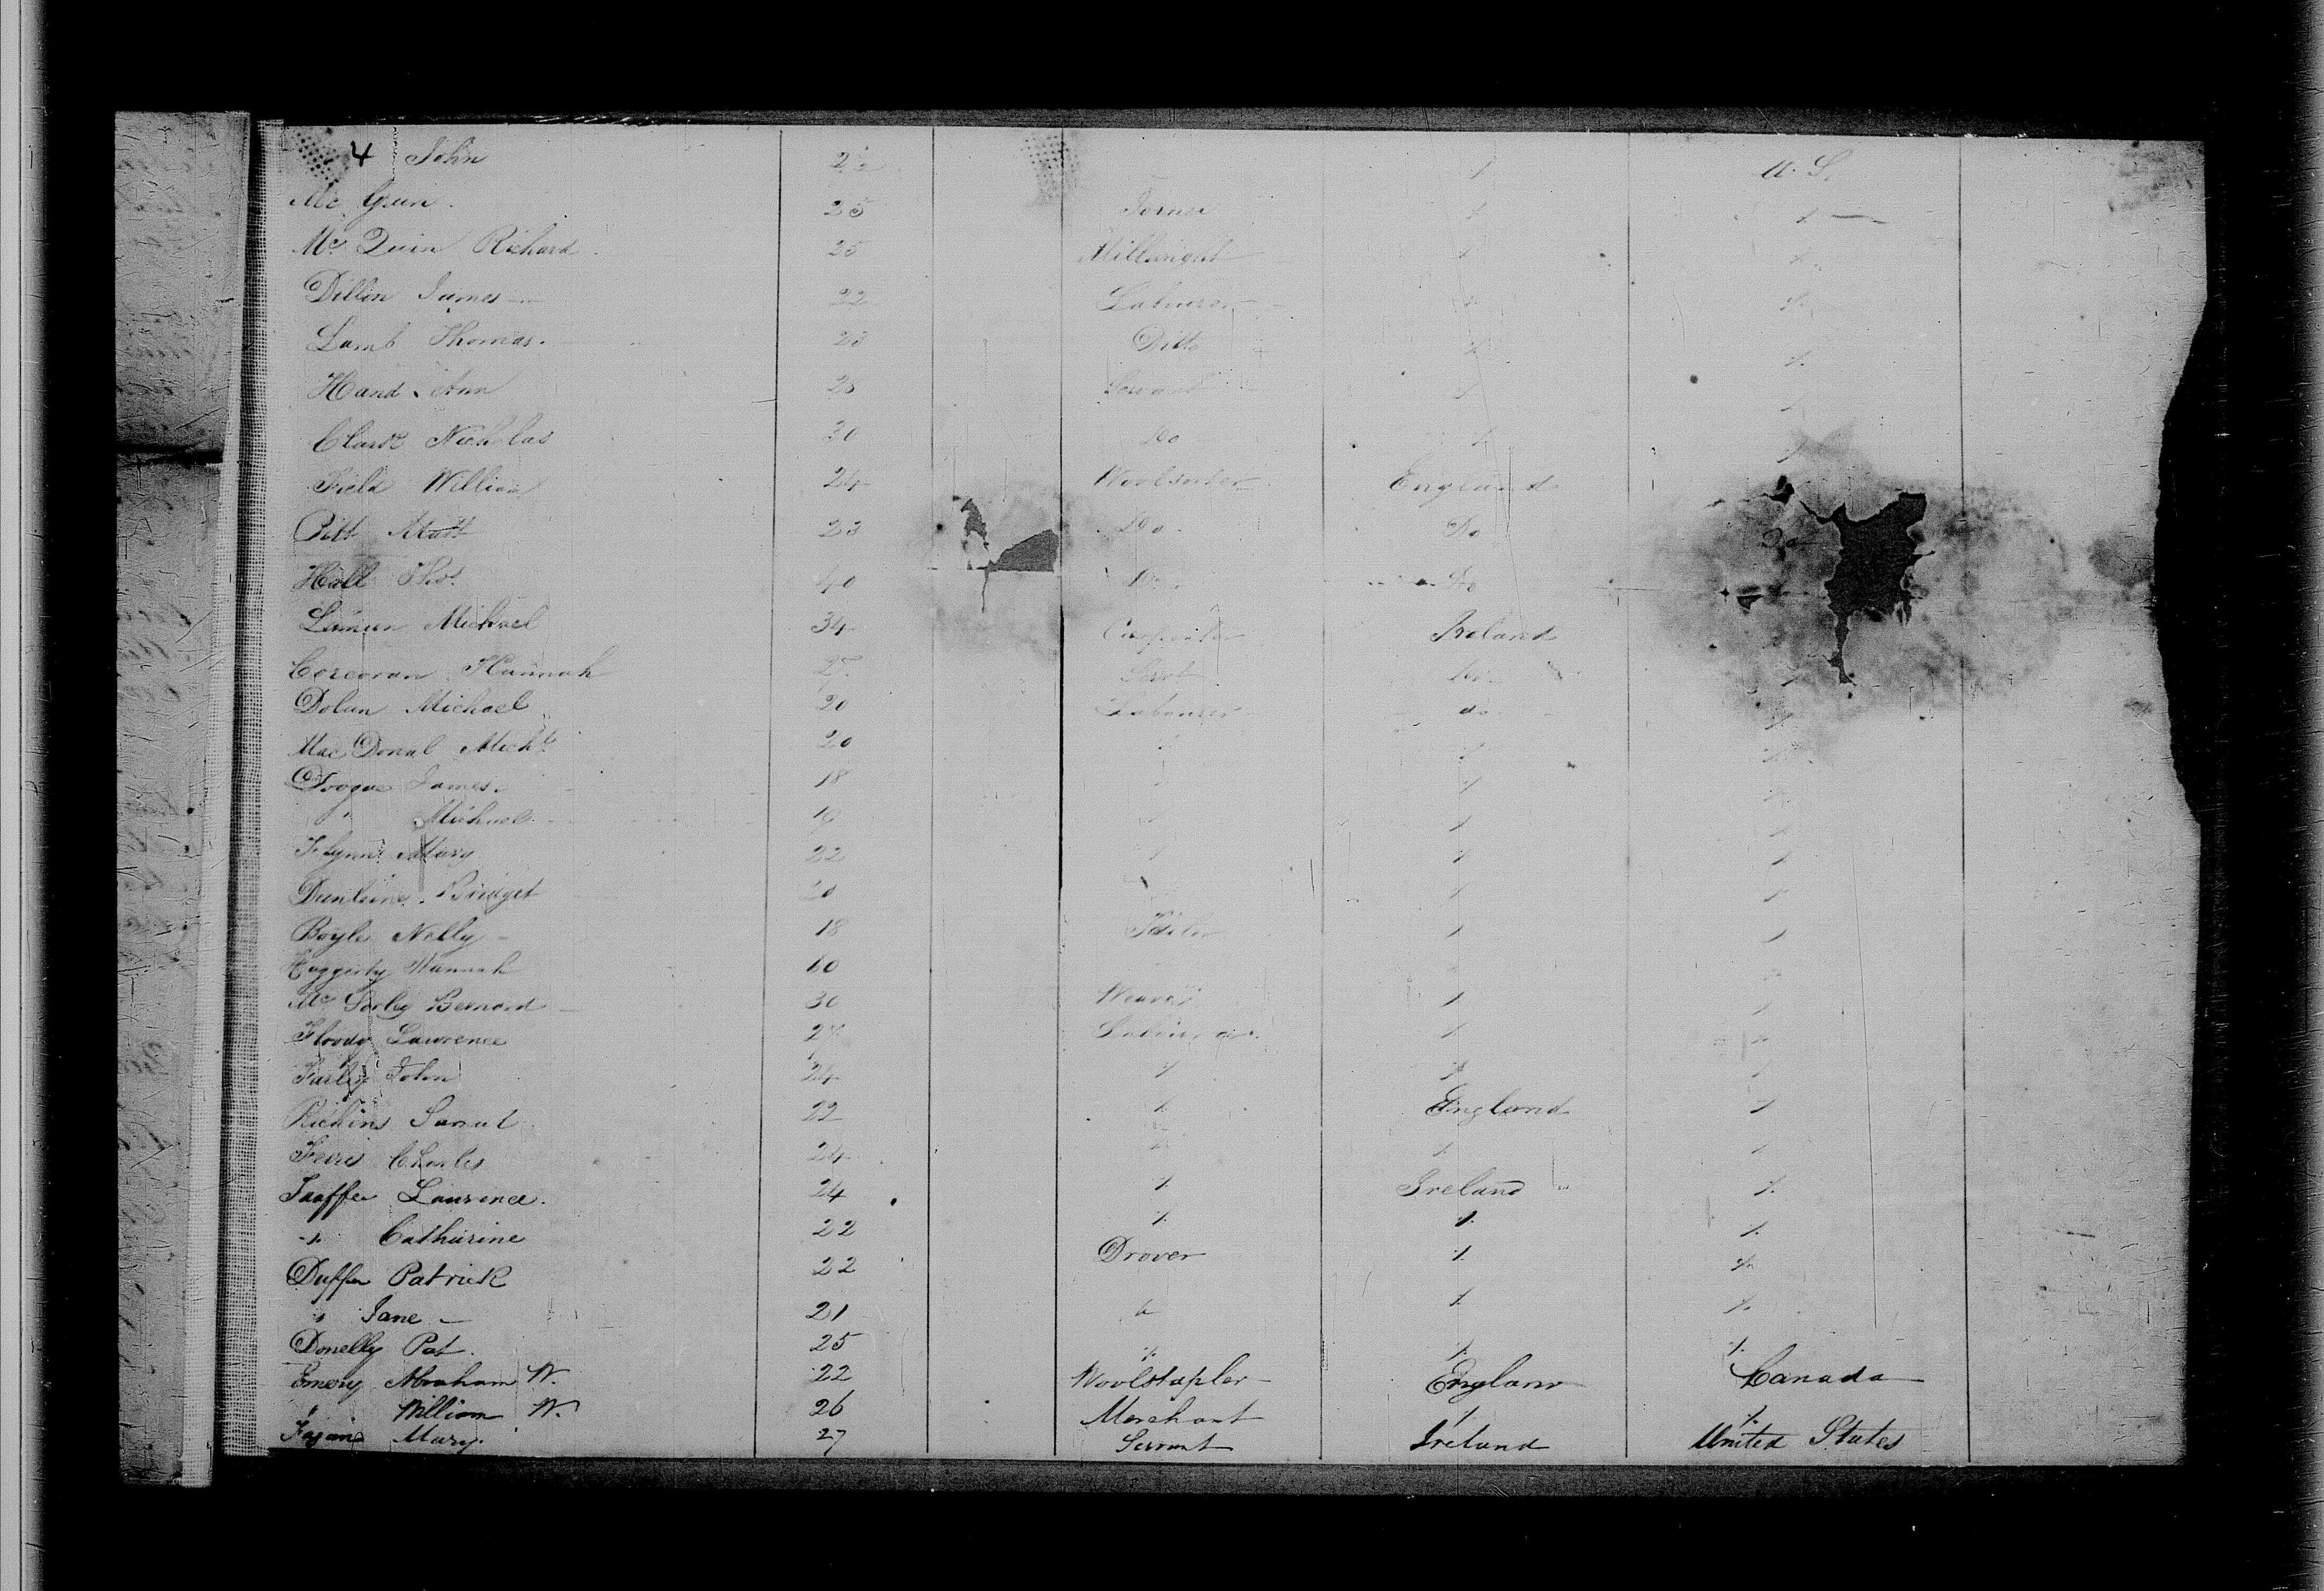 4 John 2½ ⁒ U. S.
Mc Guin 25 ⁒ ⁒
Mc Quin Richard 25 Millwright ⁒ ⁒
Dillon James 22 Labourer ⁒ ⁒
Lamb Thomas 23 Ditto ⁒ ⁒
Hand Ann 28 Servant ⁒ ⁒
Clark Nicholas 30 Do ⁒ ⁒
Field William 24 Woolsorter England
Pitt Matt 23 Do Do Do
Hall Thos. 40 Do Do
Michael 34 Carpenter Ireland
Corcoran Hannah 27 Servt Do ⁒
Dolan Michael 20 Labourer do ⁒
Mac Donal Michl 20 ⁒ ⁒ ⁒
James 18 ⁒ ⁒ ⁒
" Michael 19 ⁒ ⁒ ⁒
Flynn Mary 22 ⁒ ⁒ ⁒
Bridget 20 ⁒ ⁒
Boyle Nelly 18 ⁒ ⁒
Haggerty Hannah
Mc Sorley Bernard 30 Weaver ⁒ ⁒
Floody Lawrence 27 Labourer ⁒ ⁒
Farley John 24 ⁒ ⁒ ⁒
Richins Samul 22 ⁒ England ⁒
Charles 24 ⁒ ⁒ ⁒
Taaffe Laurence. 24 ⁒ Ireland ⁒
⁒ Catharine 22 ⁒ ⁒ ⁒
Duffe Patrick 22 Drover ⁒ ⁒
" Jane 21 ⁒ ⁒ ⁒
Donelly Pat. 25 ⁒ ⁒ ⁒
Emery Abraham W. 22 Woolstapler England Canada
" William W. 26 Merchant ⁒ ⁒
Fagan Mary. 27 Servant Ireland United States